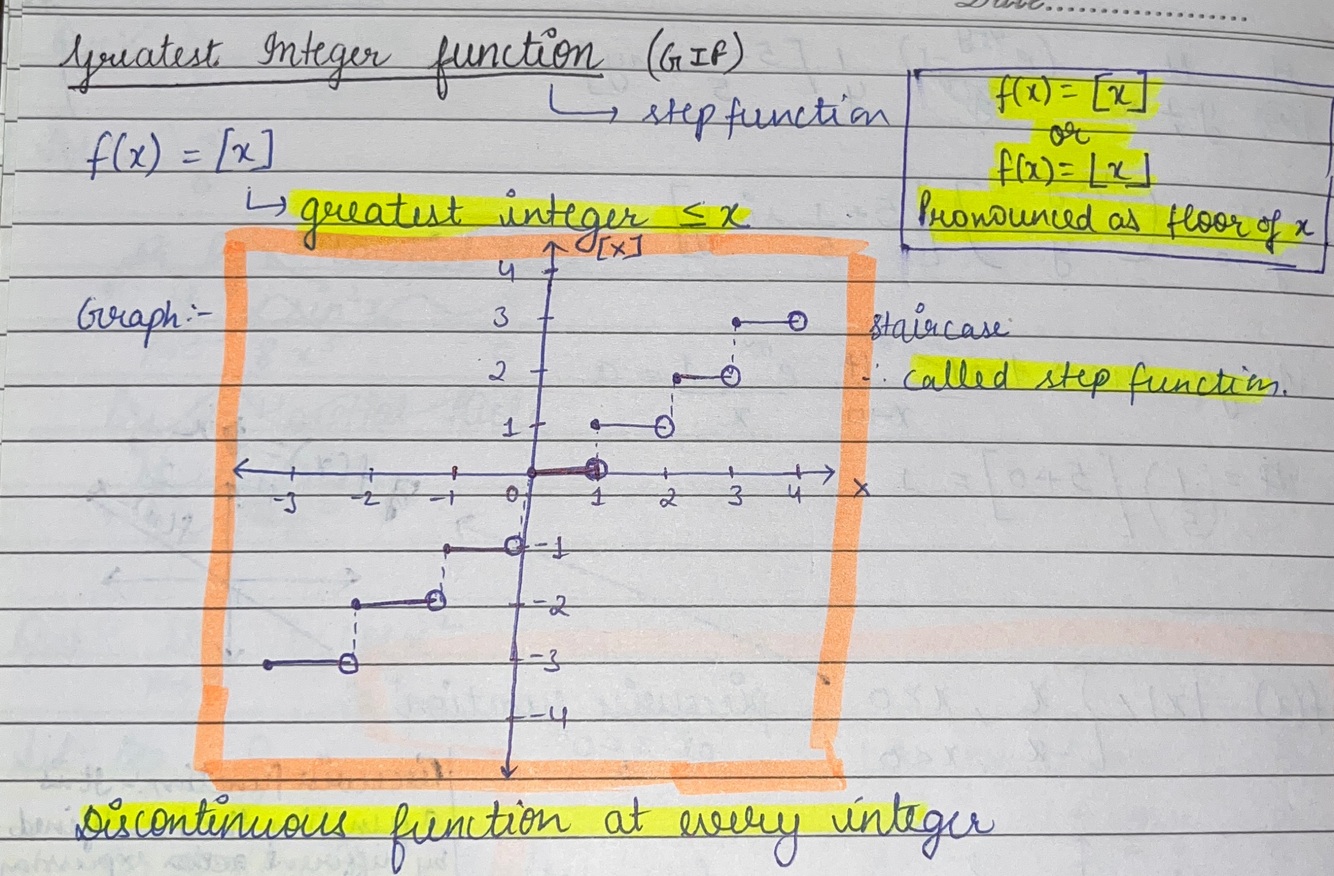 Date..................
Greatest Integer function (GIF)
↳ step function
f(x) = [x]
or
f(x) = ⌊x⌋
Pronounced as floor of x
f(x) = [x]
↳ greatest integer ≤ x
Graph:-
[x]
4
3
2
1
-3 -2 -1 0 1 2 3 4 x
-1
-2
-3
-4
staircase
∴ called step function.
Discontinuous function at every integer